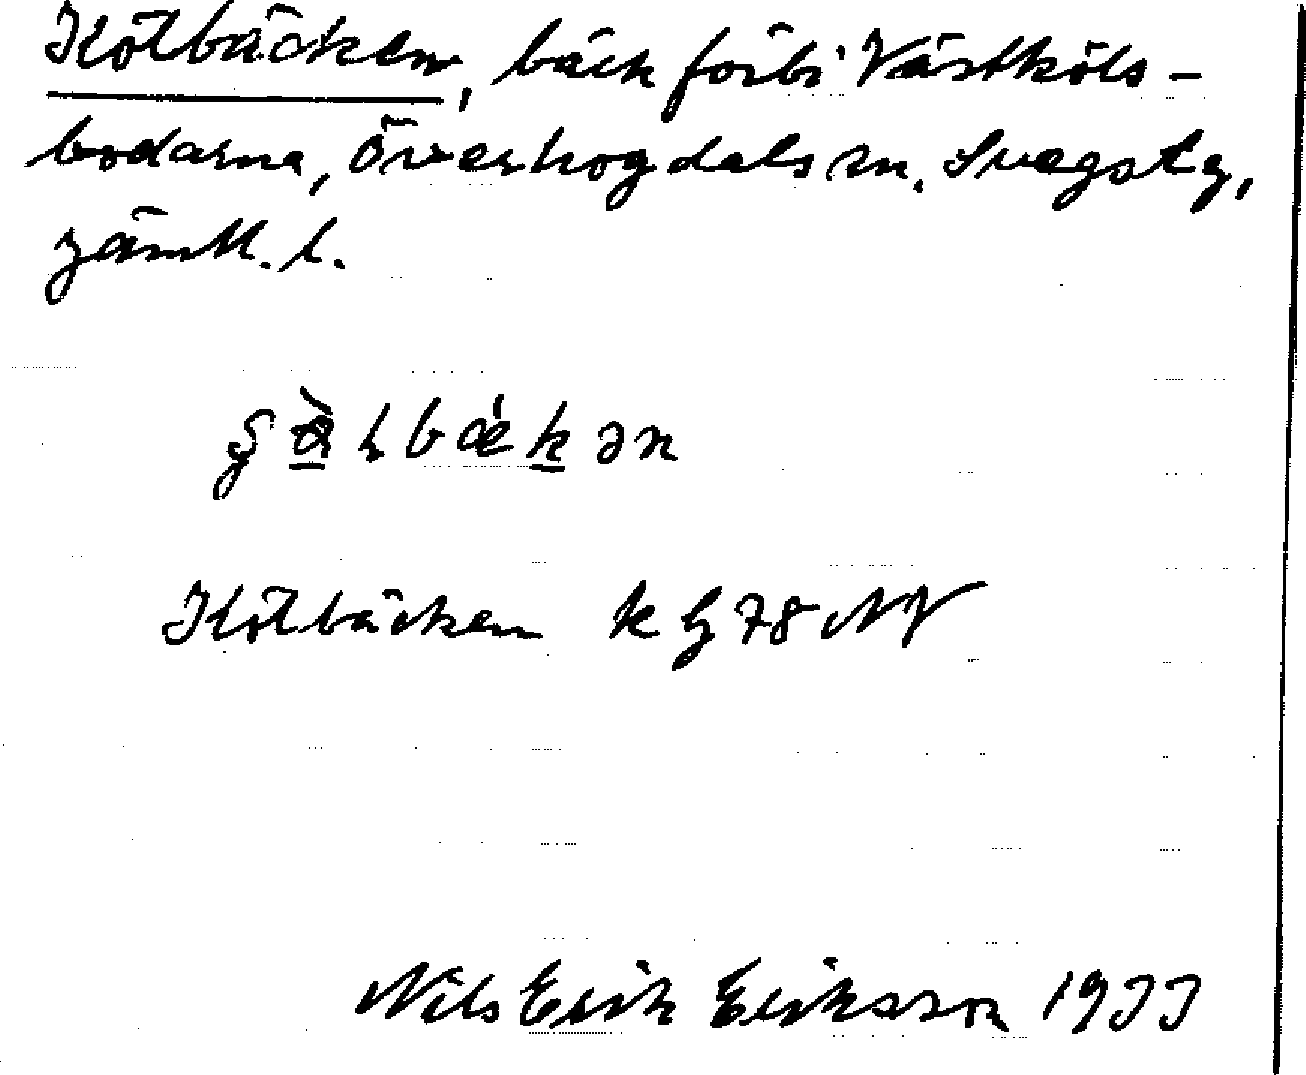 Kölbäcken, bäck förbi Västköls-
bodarna, Överhogdals sn, Svegs tg,
Jämtl. l.
Kölbäcken k bl 78 NV
Nils Erik Eriksson 1933